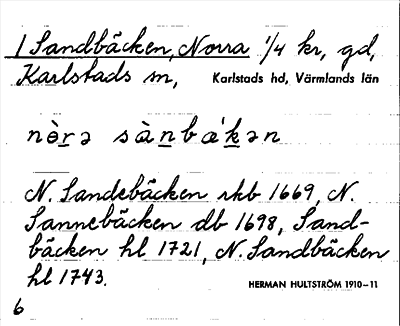 / Sandbäcken, Norra 1/4 kr, gd,
Karlstads sn, Karlstads hd, Värmlands län
nὲrə sànbæ´kən
N. Sandebäcken rkb 1669, N.
Sannebäcken db 1698, Sand-
bäcken hl 1721, N. Sandbäcken
hl 1743.
HERMAN HULTSTRÖM 1910-11
6